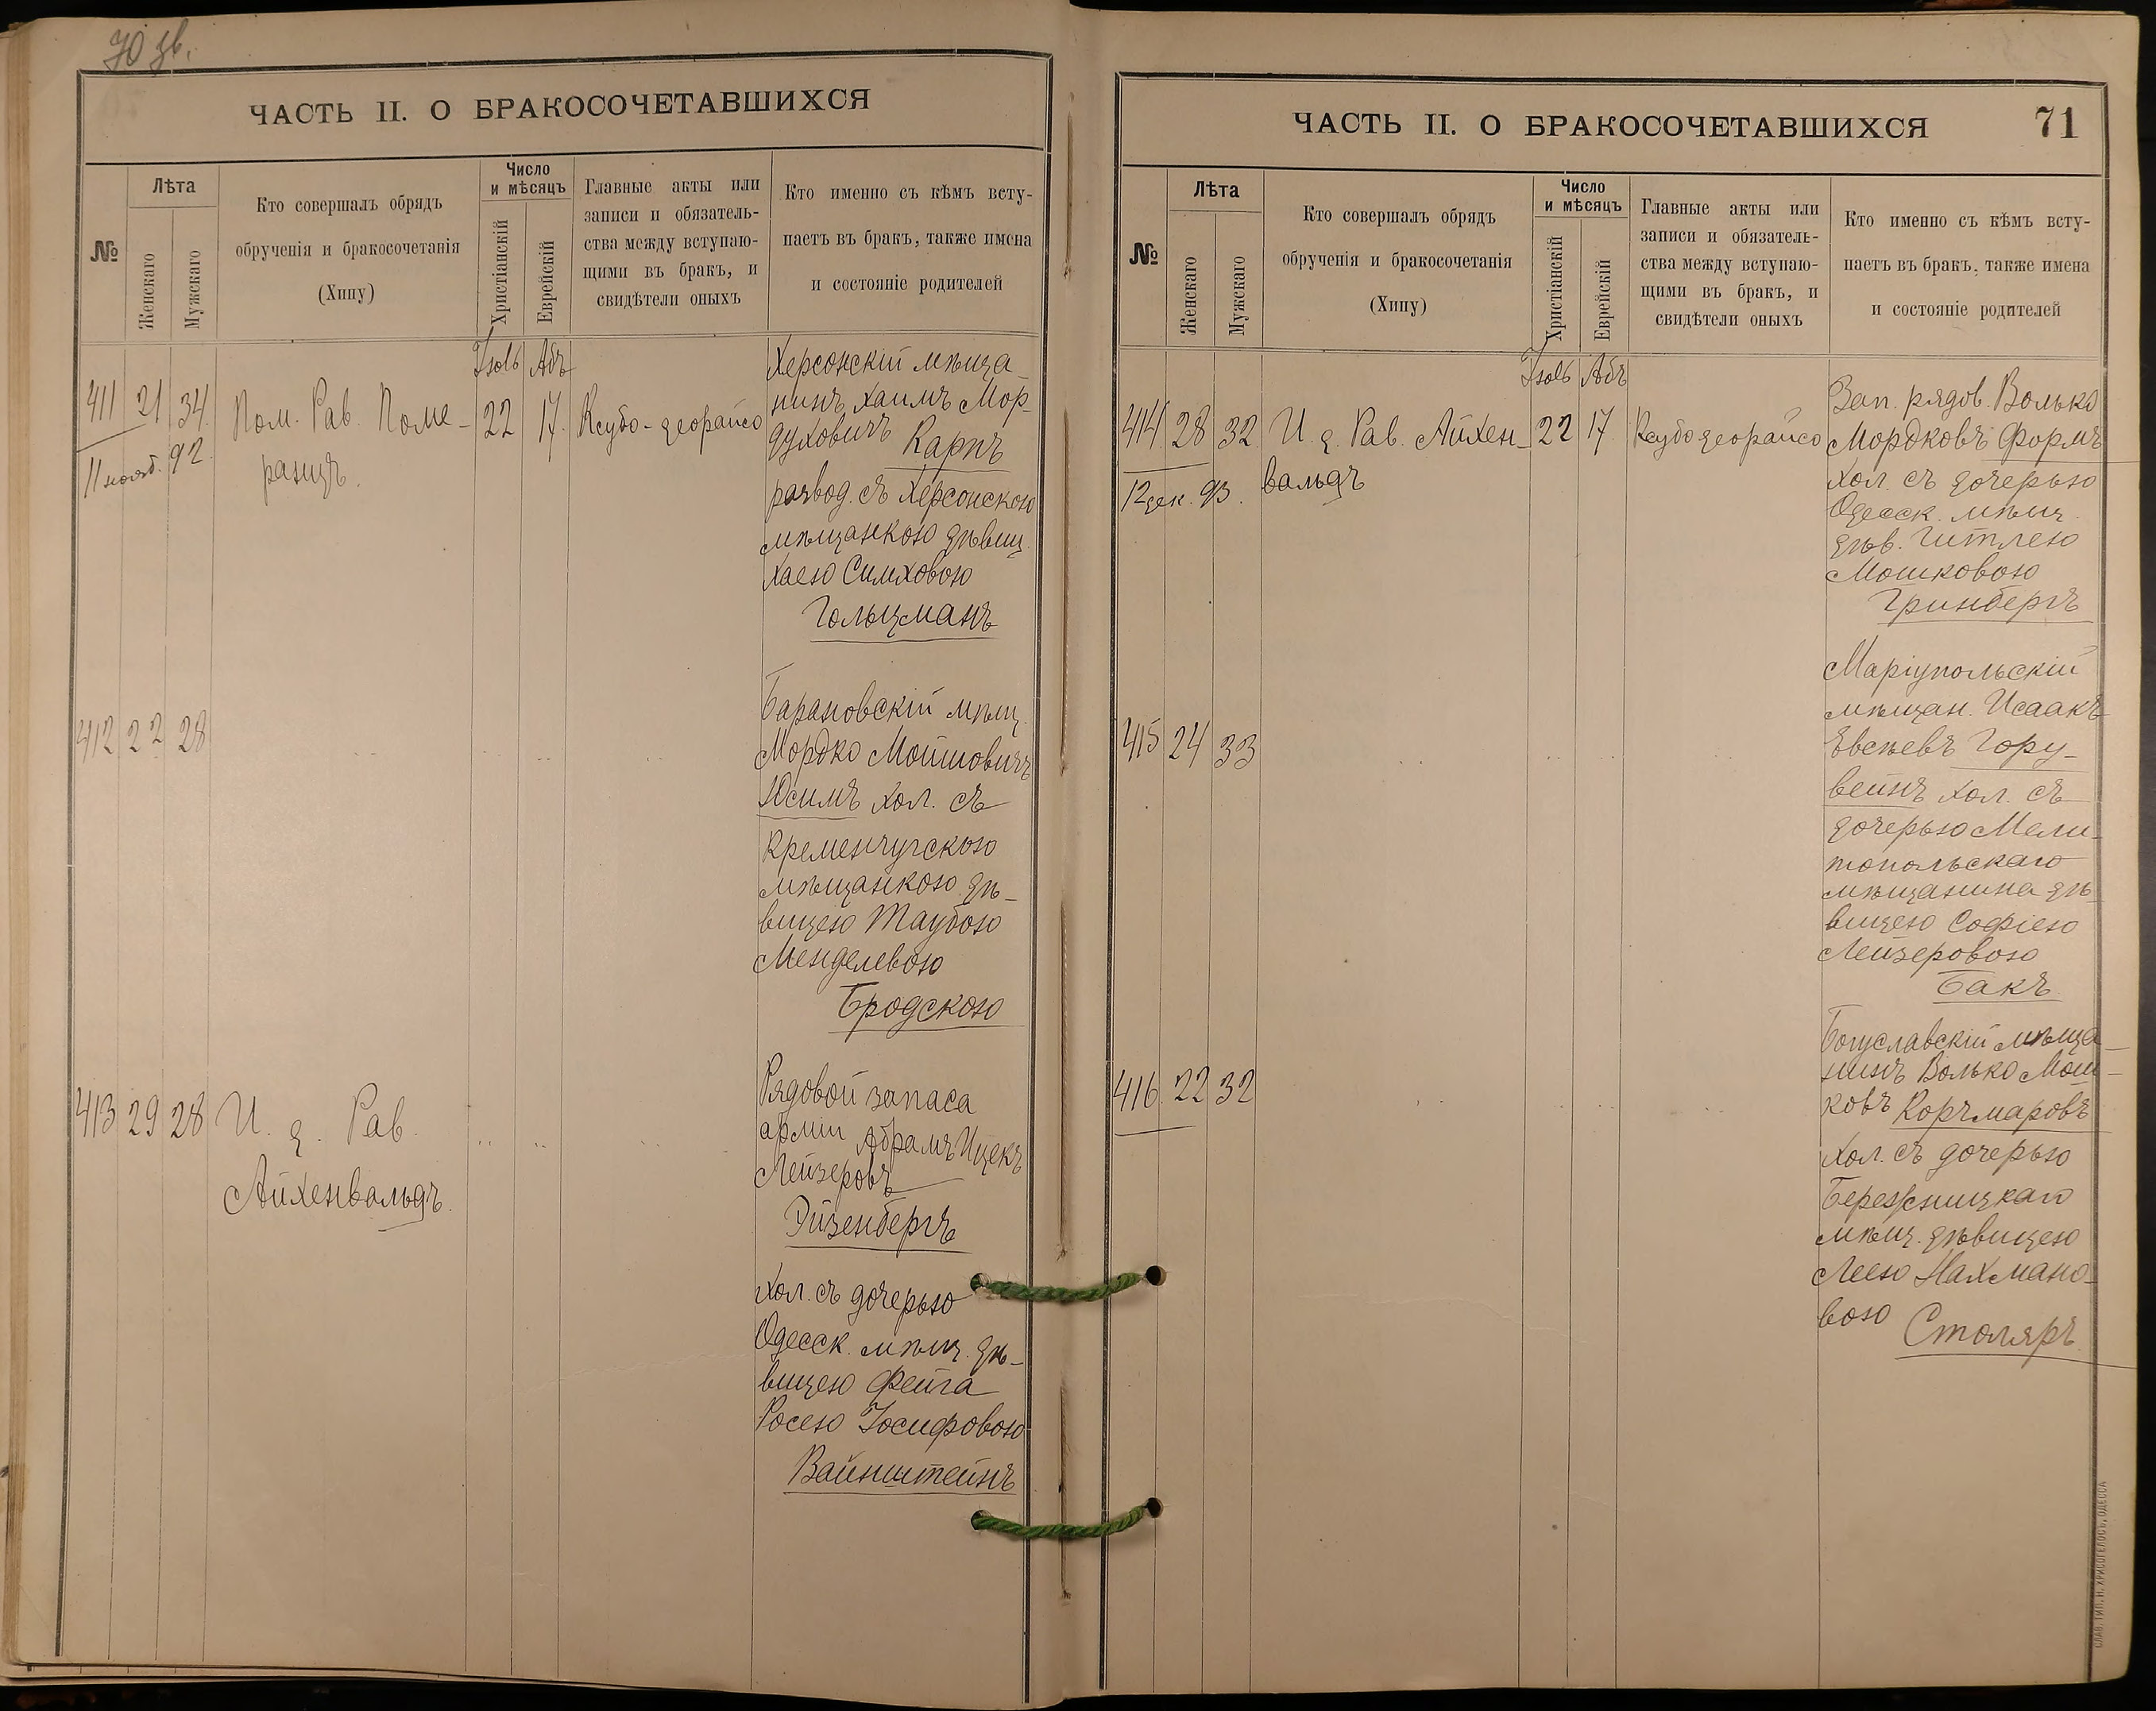 70 зв.
ЧАСТЬ II. О БРАКОСОЧЕТАВШИХСЯ
№
Лѣта
Женскаго
Мужскаго
Кто совершалъ обрядъ
обрученія и бракосочетанія
(Хипу)
Число
и мѣсяцъ
Христіанскій
Еврейскій
Главные акты или
записи и обязатель-
ства между вступаю-
щими въ бракъ, и
свидѣтели оныхъ
Кто именно съ кѣмъ всту-
паетъ въ бракъ, также имена
и состояніе родителей
Іюль Абъ
411 21 34 Пом. Рав. Поме-
ранцъ.
11 нояб. 92
22 17 Ксубо-деорайсо
Херсонскій мѣща-
нинъ Хаимъ Мор-
духовичъ Карпъ
развод. съ Херсонскою
мѣщанкою дѣвиц.
Хаею Симховою
Гольцманъ
412 22 28
Барановскій мѣщ.
Мордко Мошковичъ
Юсимъ хол. съ
Кременчугскою
мѣщанкою дѣ-
вицею Таубою
Менделевою
Бродскою
413 29 28 И. д. Рав.
Айхенвальдъ.
Рядовой запаса
арміи Абрамъ Ицекъ
Лейзеровъ
Эйзенбергъ
хол. съ дочерью
Одесск. мѣщ. дѣ-
вицею Фейга
Росею Іосифовою
Вайнштейнъ
ЧАСТЬ II. О БРАКОСОЧЕТАВШИХСЯ 71
№
Лѣта
Женскаго
Мужскаго
Кто совершалъ обрядъ
обрученія и бракосочетанія
(Хипу)
Число
и мѣсяцъ
Христіанскій
Еврейскій
Главные акты или
записи и обязатель-
ства между вступаю-
щими въ бракъ, и
свидѣтели оныхъ
Кто именно съ кѣмъ всту-
паетъ въ бракъ, также имена
и состояніе родителей
Іюль Абъ
414 28 32 И. д. Рав. Айхен-
вальдъ
12 дек. 93.
22 17. Ксубо деорайсо
Зап. рядов. Волько
Мордковъ Формъ
хол. съ дочерью
Одесск. мѣщ.
дѣв. Гитлею
Мошковою
Гринбергъ
415 24 33
Маріупольскій
мѣщан. Исаакъ
Евсѣевъ Гору-
вейнъ хол. съ
дочерью Мели-
топольскаго
мѣщанина дѣ-
вицею Софіею
Лейзеровою
Бакъ
416 22 32
Богуславскій мѣща-
нинъ Волько Мош-
ковъ Корчмаровъ
хол. съ дочерью
Бережницкаго
мѣщ. дѣвицею
Леею Нахмано-
вою Столяръ
СЛАВ. ТИП. Н. ХРИСОГЕЛОСЪ, ОДЕССА